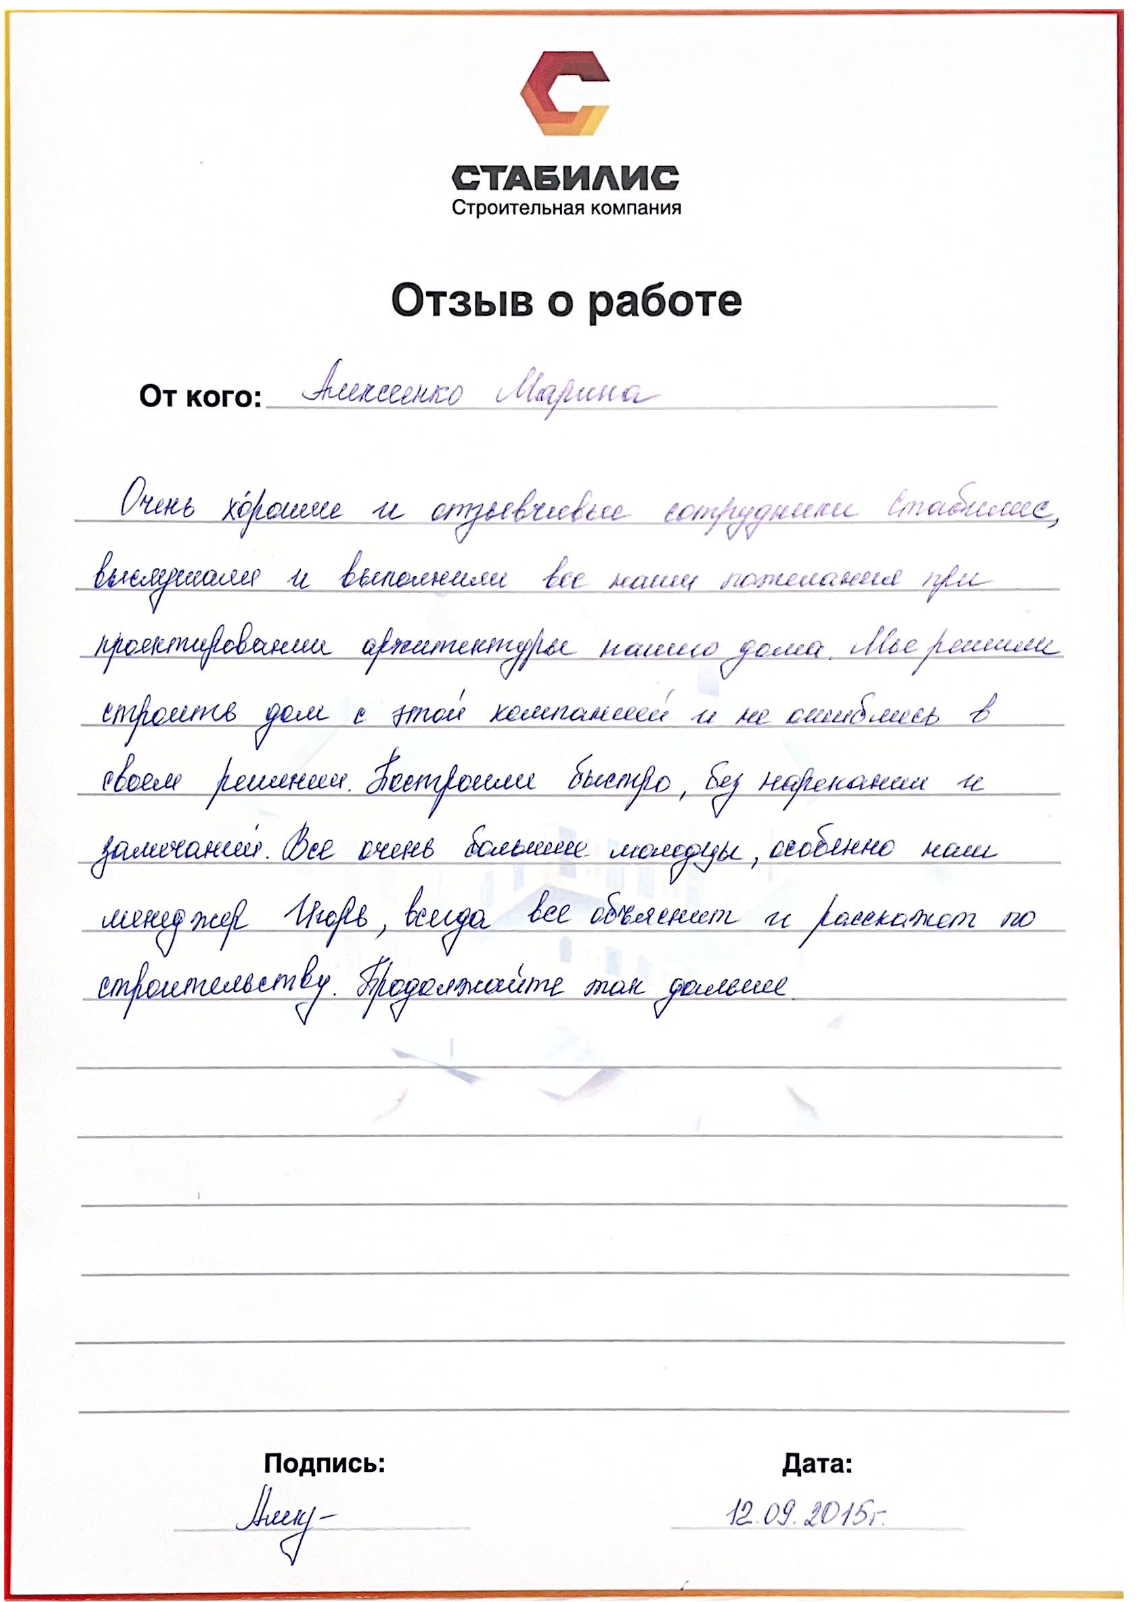 СТАБИЛИС
Строительная компания
Отзыв о работе
От кого: Алексеенко Марина
Очень хорошие и отзывчивые сотрудники Стабилис,
выслушали и выполнили все наши пожелания при
проектировании архитектуры нашего дома. Мы решили
строить дом с этой компанией и не ошиблись в
своем решении. Построили быстро, без нарекании и
замечаний. Все очень большие молодцы, особенно наш
менеджер Игорь, всегда все объяснит и расскажет по
строительству. Продолжайте так дальше.
Подпись: Дата:
12.09.2015г.